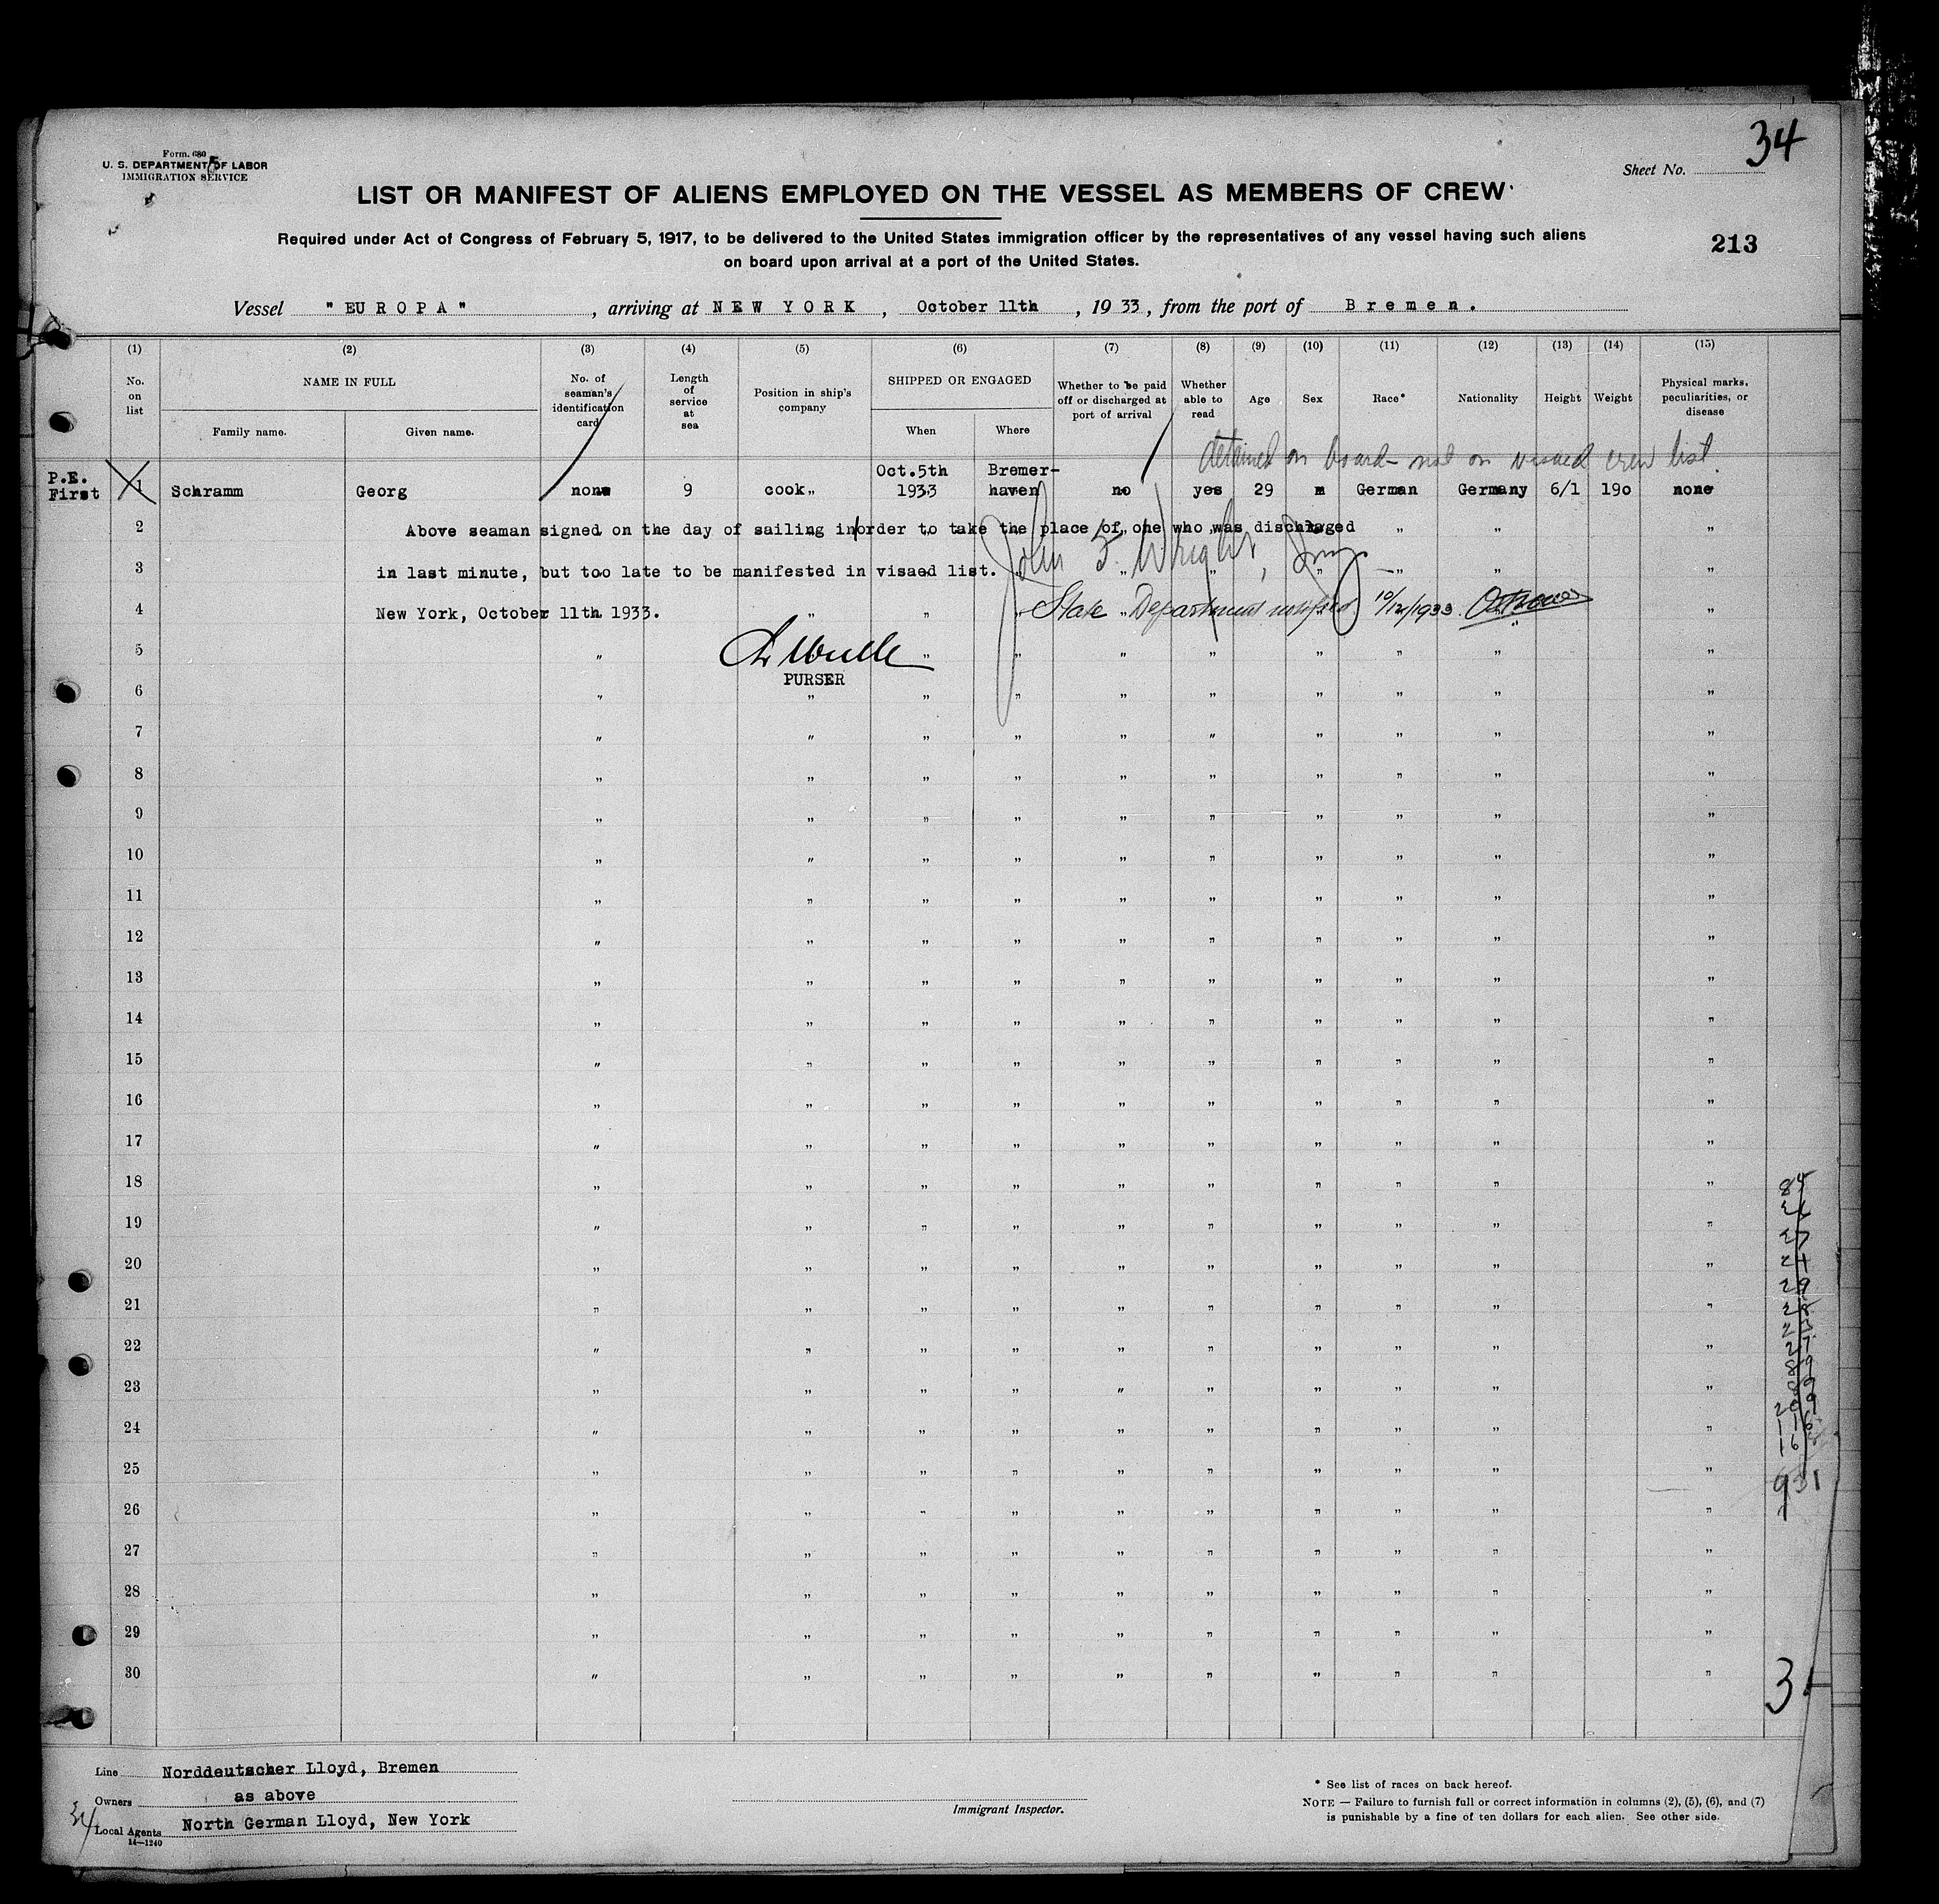 34
Form. 680
U. S. DEPARTMENT OF LABOR
IMMIGRATION SERVICE
Sheet No.
LIST OR MANIFEST OF ALIENS EMPLOYED ON THE VESSEL AS MEMBERS OF CREW
Required under Act of Congress of February 5, 1917, to be delivered to the United States immigration officer by the representatives of any vessel having such aliens
on board upon arrival at a port of the United States.
213
Vessel "EUROPA", arriving at NEW YORK, October 11th, 1933, from the port of Bremen.
(1) (2) (3) (4) (5) (6) (7) (8) (9) (10) (11) (12) (13) (14) (15)
No. on list
NAME IN FULL
Family name. Given name.
No. of seaman's identification card
Length of service at sea
Position in ship's company
SHIPPED OR ENGAGED
When Where
Whether to be paid off or discharged at port of arrival
Whether able to read
Age
Sex
Race*
Nationality
Height
Weight
Physical marks, peculiarities, or disease
detained on board - not on visaed crew list.
P.E.
First
Oct.5th Bremer-
1 Schramm Georg none 9 cook „ 1933 haven no yes 29 m German Germany 6/1 190 none
2 Above seaman signed on the day of sailing in order to take the place of one who was discharged „ „ „
John F. Wright, Insp.
3 in last minute, but too late to be manifested in visaed list. „ „ „ „ „ „ „
4 New York, October 11th 1933. „ „ „ State Department notified 10/12/1933 „
5 „ „ „ „ „ „ „ „ „
PURSER
6 „ „ „ „ „ „ „ „ „ „
7 „ „ „ „ „ „ „ „ „ „
8 „ „ „ „ „ „ „ „ „ „
9 „ „ „ „ „ „ „ „ „ „
10 „ „ „ „ „ „ „ „ „ „
11 „ „ „ „ „ „ „ „ „ „
12 „ „ „ „ „ „ „ „ „ „
13 „ „ „ „ „ „ „ „ „ „
14 „ „ „ „ „ „ „ „ „ „
15 „ „ „ „ „ „ „ „ „ „
16 „ „ „ „ „ „ „ „ „ „
17 „ „ „ „ „ „ „ „ „ „
18 „ „ „ „ „ „ „ „ „ „
19 „ „ „ „ „ „ „ „ „ „
20 „ „ „ „ „ „ „ „ „ „
21 „ „ „ „ „ „ „ „ „ „
22 „ „ „ „ „ „ „ „ „ „
23 „ „ „ „ „ „ „ „ „ „
24 „ „ „ „ „ „ „ „ „ „
25 „ „ „ „ „ „ „ „ „ „
931
26 „ „ „ „ „ „ „ „ „ „
27 „ „ „ „ „ „ „ „ „ „
28 „ „ „ „ „ „ „ „ „ „
29 „ „ „ „ „ „ „ „ „ „
30 „ „ „ „ „ „ „ „ „ „
3
Line Norddeutscher Lloyd, Bremen
Owners as above
34
Local Agents North German Lloyd, New York
14—1240
Immigrant Inspector.
* See list of races on back hereof.
NOTE — Failure to furnish full or correct information in columns (2), (5), (6), and (7)
is punishable by a fine of ten dollars for each alien. See other side.